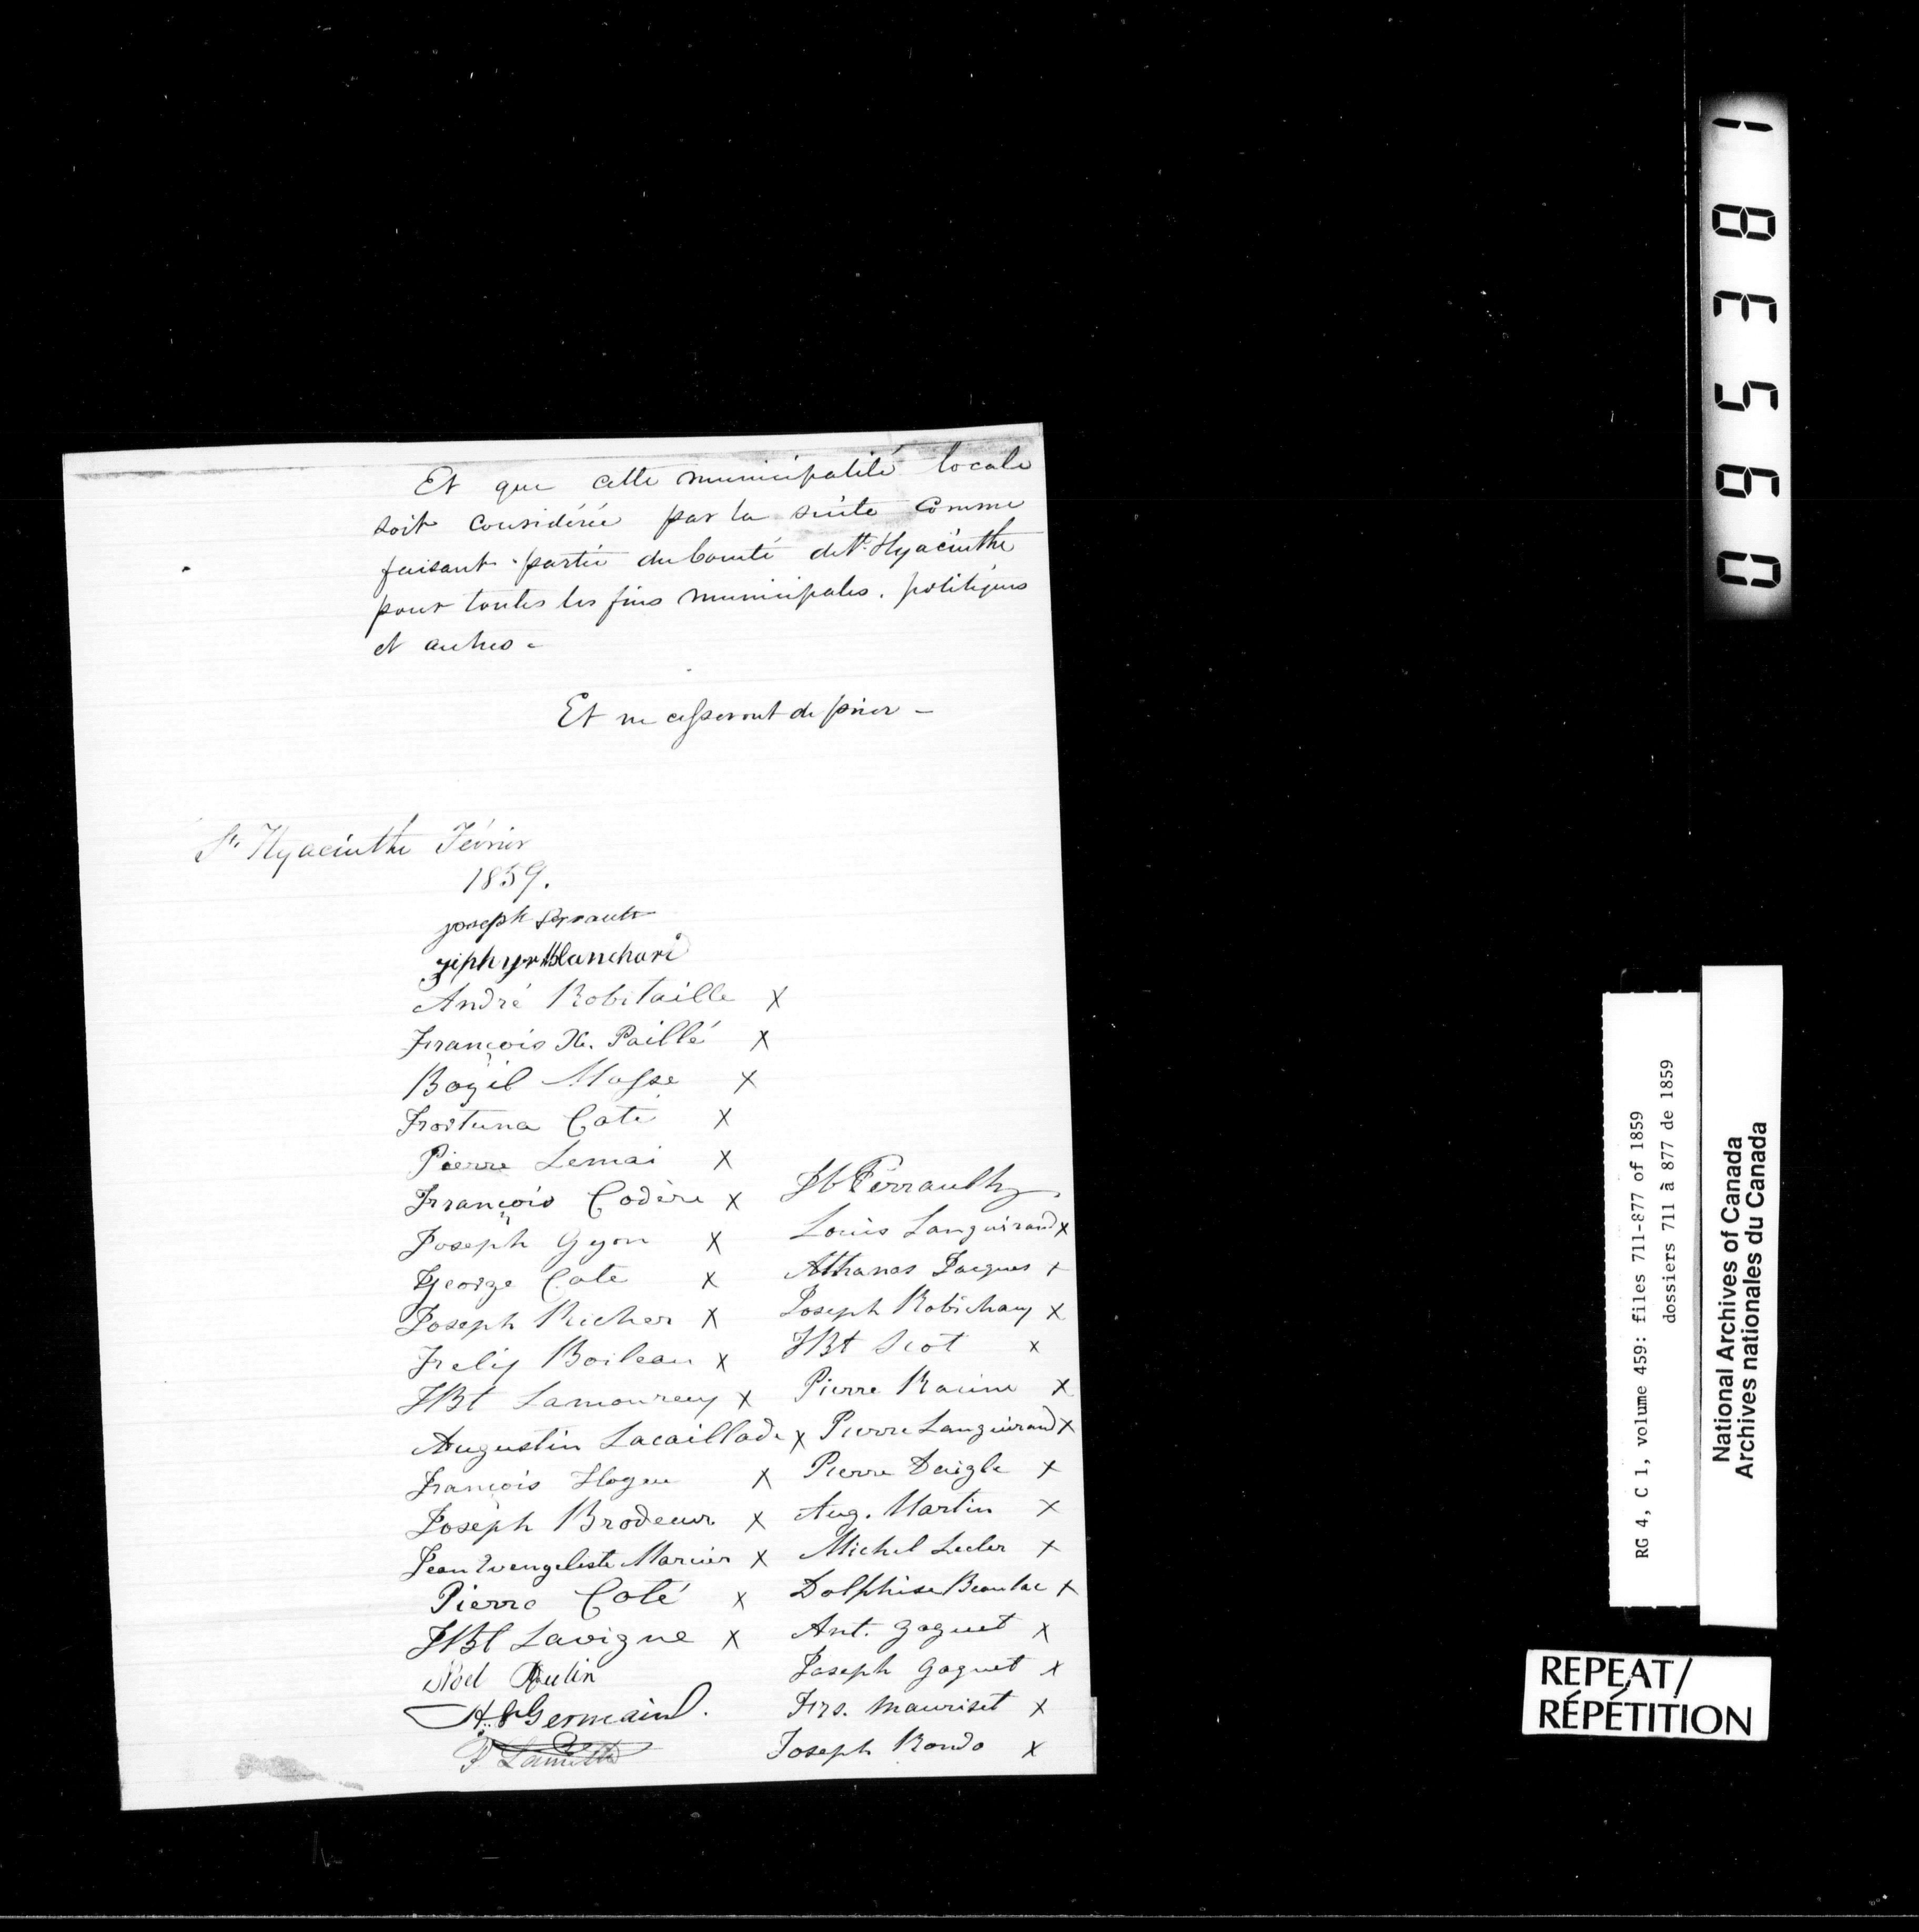 Et que cette municipalité locale
soit considérée par la suite comme
faisant partie du Comté de St. Hyacinthe
pour toutes les fins municipales, politiques
et autres -
Et ne cesseront de prier -
St. Hyacinthe Février
1859.
joseph perrault
ziphyr Blanchard
André Robitaille X
François X. Paillé X
Bazil Masse X
Fortuna Coté X
Pierre Lemai X
François Codère X
Joseph Gyon X
George Cote X
Joseph Richer X
Felix Boileau X
JBt Lamoureux X
Augustin Lacaillade X
François Hogue X
Joseph Brodeur X
Jean Evengeliste Marcier X
Pierre Coté X
JBt Lavigne X
Noel Aulin
H. Germain.
P
Jb Perrault
Louis Languirand X
Athanas Jacques X
Joseph Robichaux X
JBt Scot X
Pierre Racine X
Pierre Languirand X
Pierre Daigle X
Aug. Martin X
Michel Lecler X
Dolphise Beaulac X
Ant. Goguet X
Joseph Goguet X
Frs. Mauriset X
Joseph Rondo X
095381
RG 4, C 1, volume 459: files 711-877 of 1859
dossiers 711 à 877 de 1859
National Archives of Canada
Archives nationales du Canada
REPEAT/
RÉPÉTITION